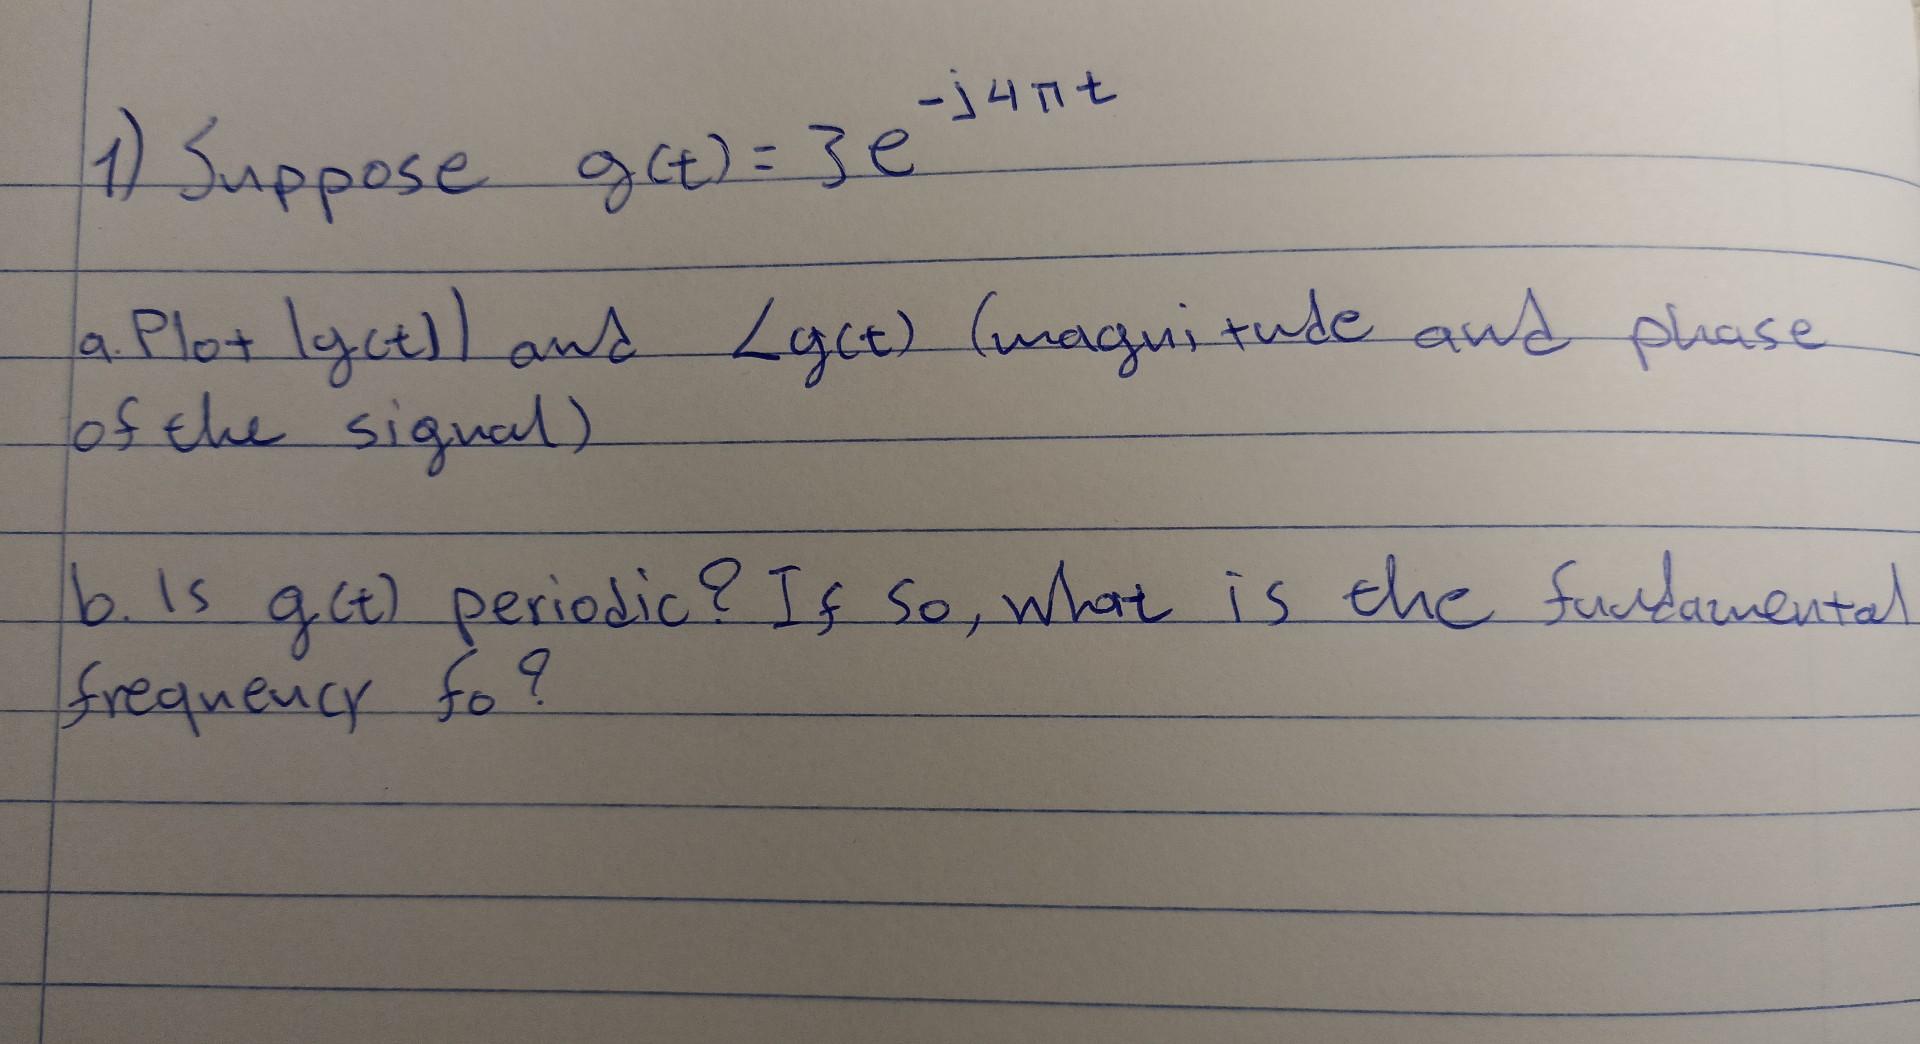 1) Suppose g(t) = 3e^{-j4πt}
a. Plot |g(t)| and ∠g(t) (magnitude and phase
of the signal)
b. Is g(t) periodic? If so, what is the fundamental
frequency fo?